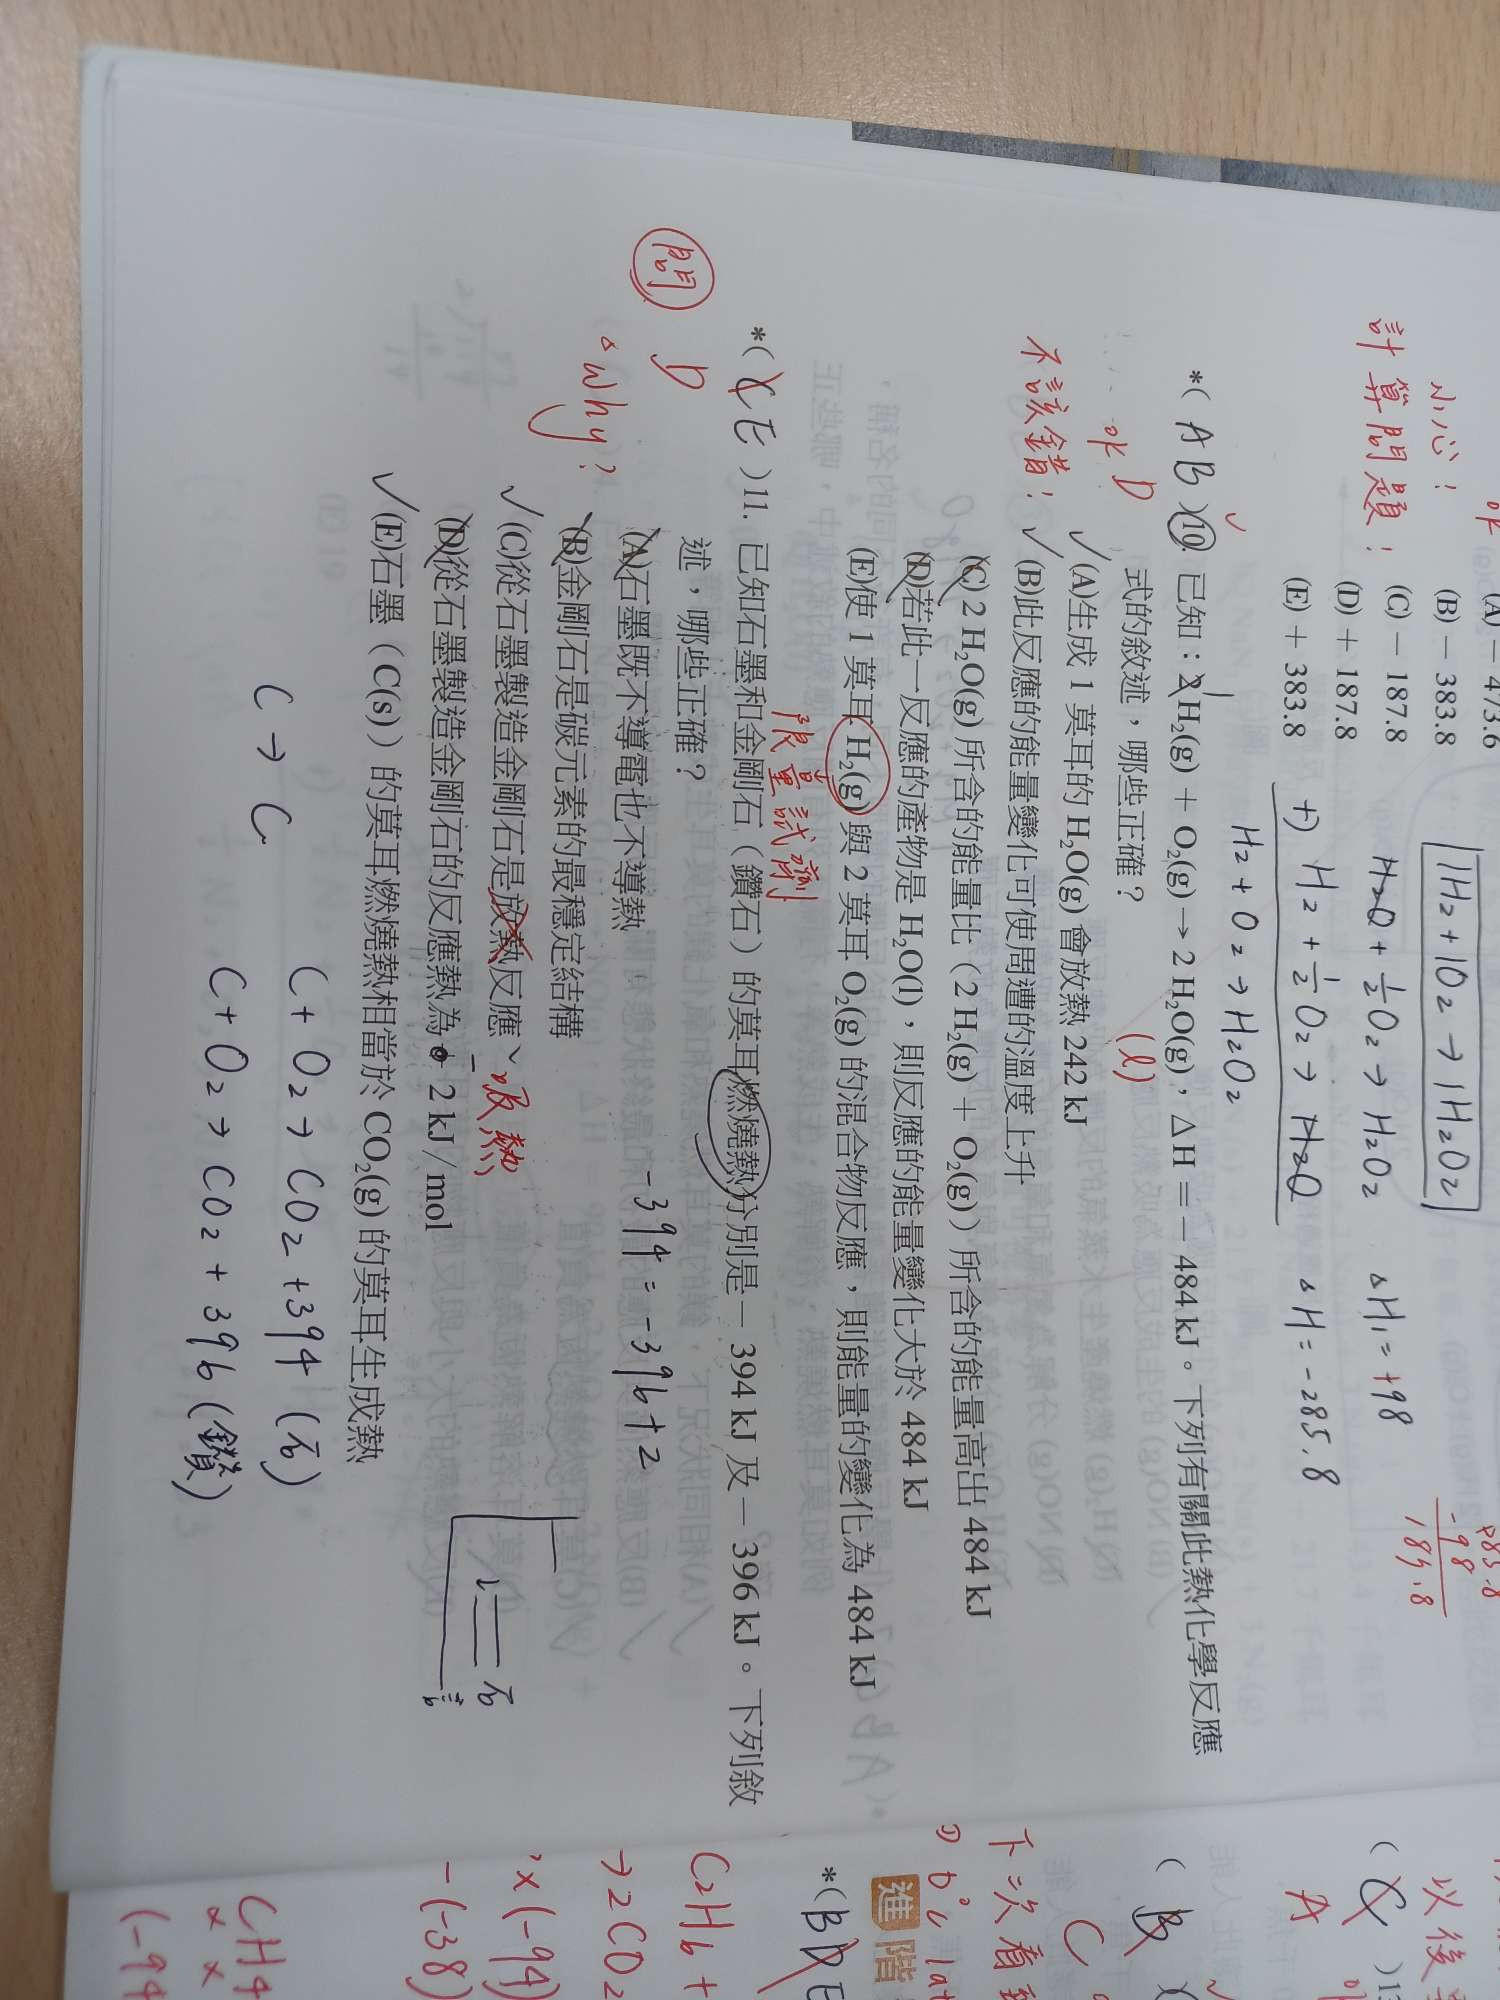 小心！
計算問題！
(A) － 473.6
(B) － 383.8
(C) － 187.8
(D) ＋ 187.8
(E) ＋ 383.8
1H₂ + 1O₂ → 1H₂O₂
H₂O + ½O₂ → H₂O₂ △H₁ = +98
+) H₂ + ½O₂ → H₂O △H = -285.8
H₂ + O₂ → H₂O₂
-98
187.8
*( A B )10. 已知：2 H₂(g) ＋ O₂(g) → 2 H₂O(g)，△H ＝ － 484 kJ。下列有關此熱化學反應
式的敘述，哪些正確？
(l)
D
不該錯！
(A)生成 1 莫耳的 H₂O(g) 會放熱 242 kJ
(B)此反應的能量變化可使周遭的溫度上升
(C) 2 H₂O(g) 所含的能量比（2 H₂(g) ＋ O₂(g)）所含的能量高出 484 kJ
(D)若此一反應的產物是 H₂O(l)，則反應的能量變化大於 484 kJ
(E)使 1 莫耳 H₂(g) 與 2 莫耳 O₂(g) 的混合物反應，則能量的變化為 484 kJ
限量試劑
問
*( C E )11. 已知石墨和金剛石（鑽石）的莫耳燃燒熱分別是－ 394 kJ 及－ 396 kJ。下列敘
D
述，哪些正確？
-394 = -396 + 2
△ Why？
(A)石墨既不導電也不導熱
(B)金剛石是碳元素的最穩定結構
(C)從石墨製造金剛石是放熱反應
吸熱
(D)從石墨製造金剛石的反應熱為 － 2 kJ / mol
(E)石墨（C(s)）的莫耳燃燒熱相當於 CO₂(g) 的莫耳生成熱
C → C
C + O₂ → CO₂ + 394 (石)
C + O₂ → CO₂ + 396 (鑽)
以後
( C )13
A
( B )
C
下次看
進階
*( B D E
C₂H₆ +
→ 2CO₂
x (-94)
- (-38)
CH4
x x
(-94